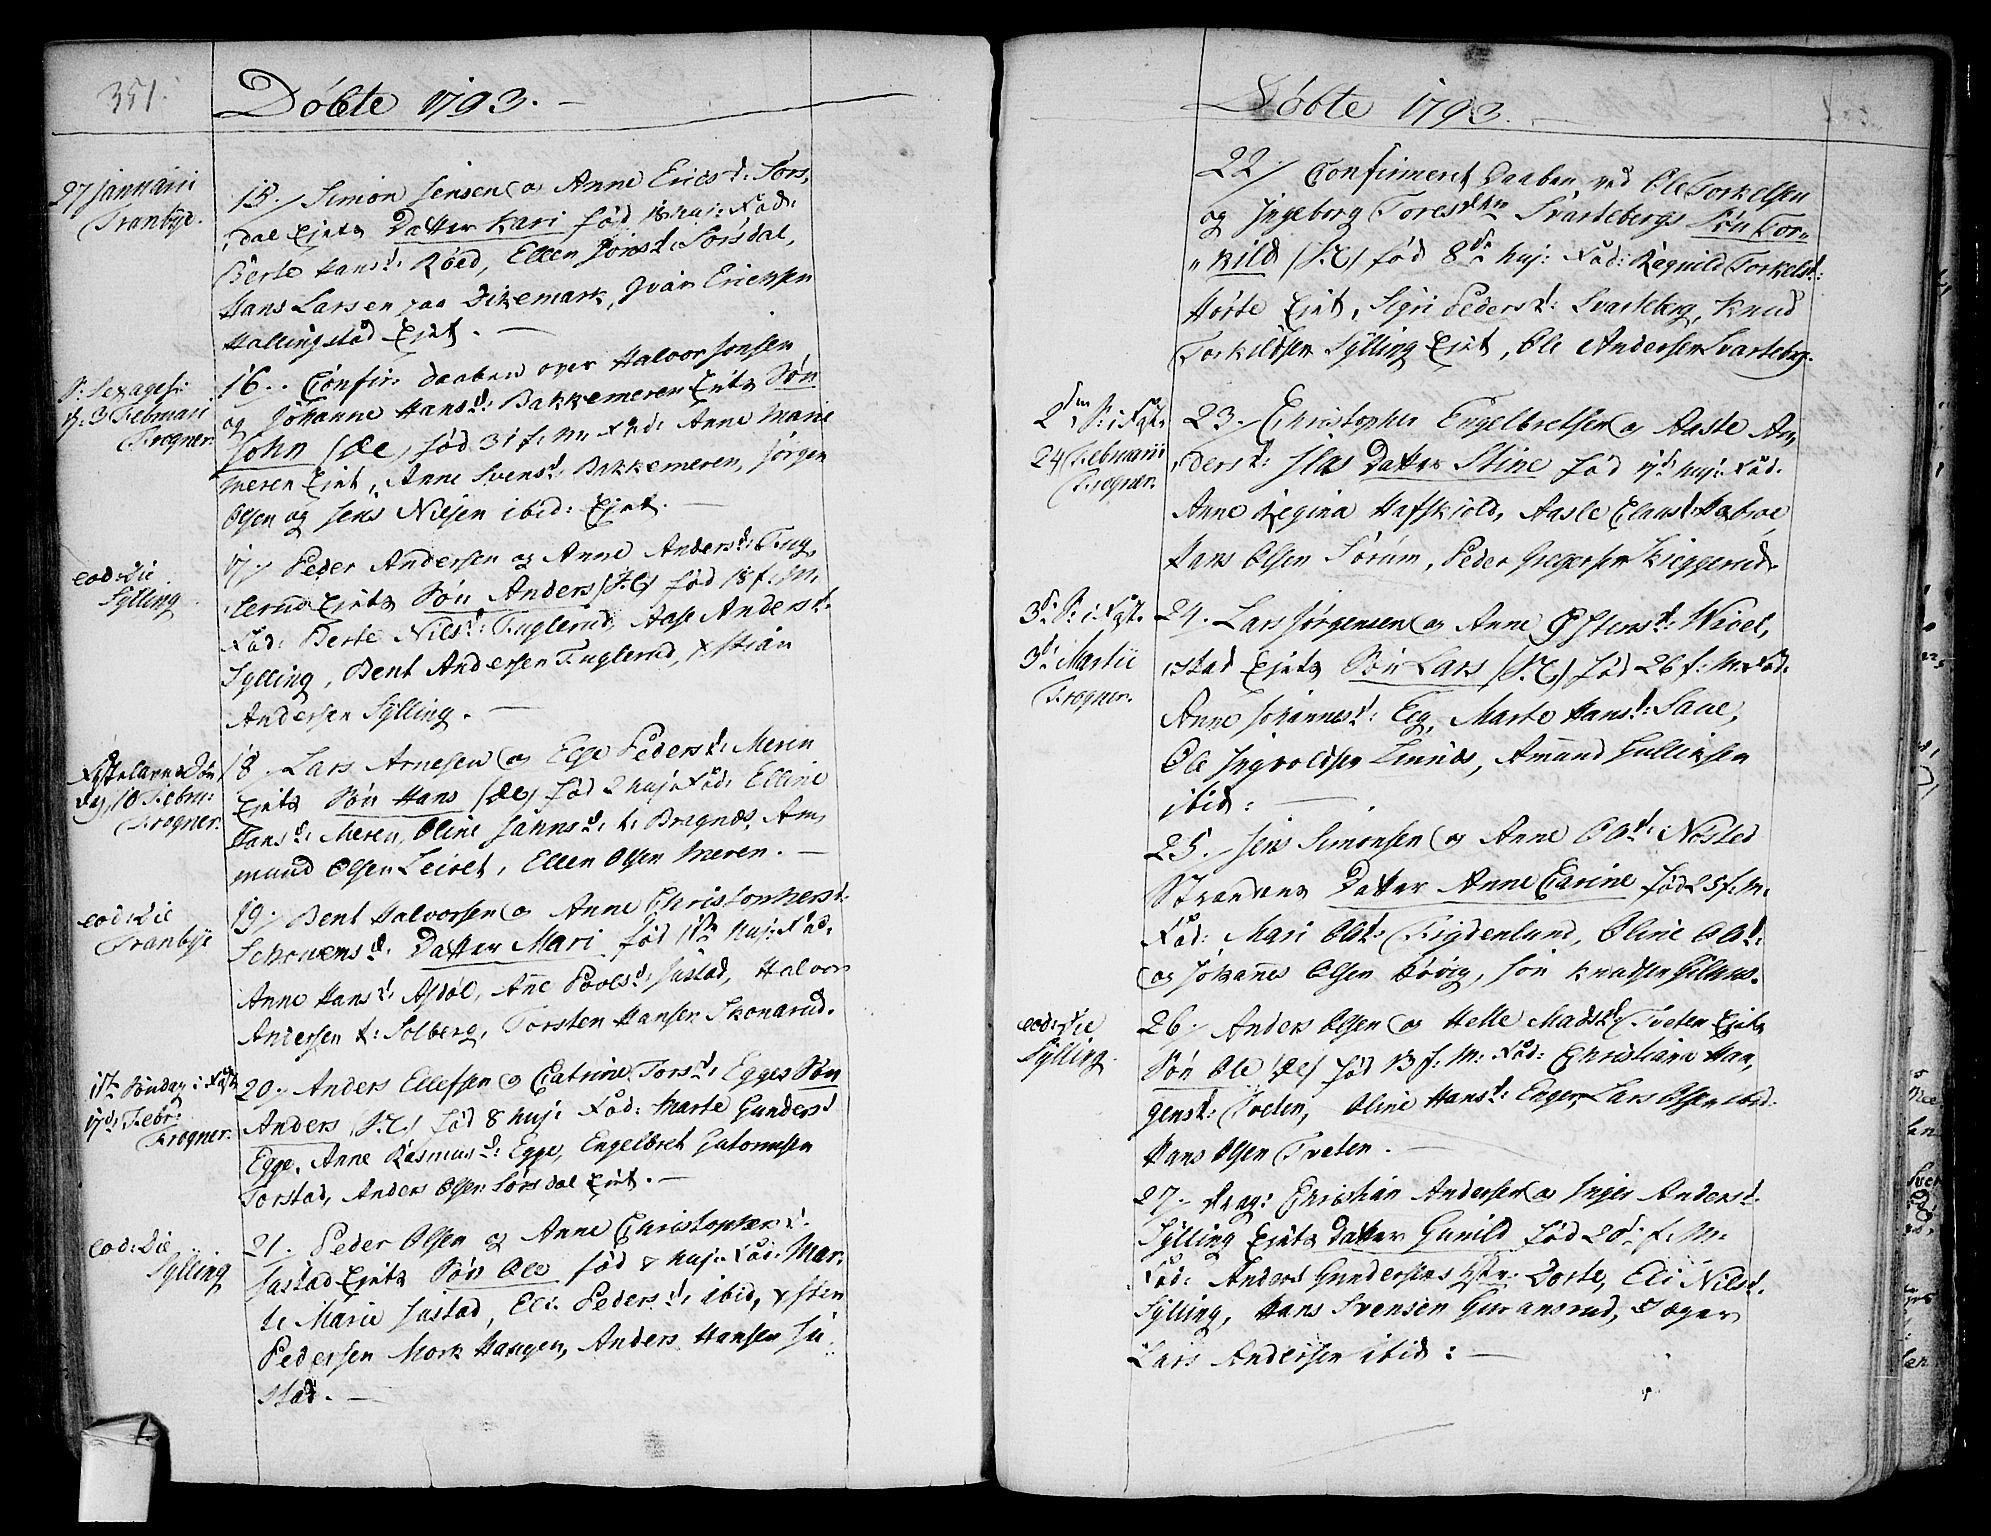 351.
Döbte 1793. —
27 Januarii
Tranbye.
15. / Simon Jensen og Anne Ericsd: Sørs,
,dal Ejets Datter Kari fød 18 huj: Fad:
Berte Hansd: Røed, Ellen Jonsd: Sørsdal,
Hans Larsen paa Dikemark, Ivar Ericksen
Hallingstad Ejet. —
S: Sexages:
d: 3 Februari
Frogner.
16. . Confir: daaben over Halvor Jonsen
og Johanne Hansd: Bakkemeren Ejets Søn
John fød 31 f: M: Fad: Anne Marie
Meren Ejet, Anne Svensd: Bakkemeren, Jørgen
Olsen og Jens Nilsen ibid: Ejet. —
eod: Die
Sylling
17 / Peder Andersen og Anne Andersd: Fug,
,lerud Ejets Søn Anders fød 18 f: M:
Fad: Berte Nilsd: Fuglerud, Aase Andersd:
Sylling, Bent Andersen Fuglerud, Xstian
Andersen Sylling. —
Fastelavns Søn
dag 10 Febru:
Frogner.
18 . Lars Arnesen og Else Pedersd: Meren
Ejets Søn Hans fød 2 huj: Fad: Elline
Hansd: Meren, Oline Hannsd: Bragnæs, Am,
mund Olsen Leiret, Ellen Olsen Meren. —
eod: Die
Tranbye
19 / Bent Halvorsen og Anne Christophersd:
Schouensd: Datter Mari fød 1ste huj: Fad:
Anne Hansd: Asdøl, Anne Povelsd: Justad, Halvor
Andersen Solberg, Torsten Hansen Skonarud.
1ste Søndag i Fast:
17d: Febr:
Frogner.
20 / Anders Ellefsen og Catrine Torsd: Egges Søn
Anders fød 8 huj: Fad: Marte Gundersd
Egge, Anne Rasmusd: Egge, Engelbret Guttormsen
Torstad, Anders Olsen Sørsdal Ejet. —
eod: Die
Sylling
21. Peder Olsen og Anne Christophersd:
Justad Ejets Søn Ole fød huj: Fad: Mar-
te Marie Justad, Eli Pedersd: ibid, Xsten
Pedersen Mork Haugen, Anders Hansen Ju
stad. —
Döbte 1793. —
22 / Confirmeret Daaben ved Ole Torkelsen
og Ingeborg Toresd: Svartebergs Søn Tor-
„kild fød 8de huj: Fad: Ragnild Torkelsd:
Hørte Ejet, Sigri Pedersd: Svarteberg, Knud
Torkildsen Sylling Ejet, Ole Andersen Svarteberg.
2den S: i Fast.
24 Februarii
Frogner.
23 / Christopher Engelbretsen og Aaste An,
,dersd: Jlas Datter Stine fød 17d huj: Fad:
Anne Regina Hafskiold, Aasle Clausd:
Hans Olsen Sørum, Peder Gregersen Kieggerud.
3d: S: i Fast.
3d: Martii
Frogner.
24. Lars Jørgensen og Anne Østensd: Wivel,
,stad Ejets Søn Lars fød 26 f: M: Fad:
Anne Johannesd: Eeg, Marte Hansd: Saue,
Ole Ingvoldsen Linnes, Amund Gulliksen
ibid: —
25. Jens Simonsen og Anne Olsd: Nøsted
Strandens Datter Anne Carine fød 25 f: M:
Fad: Mari Olsd: Frydenlund, Oline Olsd:
og Johannes Olsen Høvig, Jon Knudsen Gilhus.
eod: Die
Sylling
26 / Anders Olsen og Helle Madsd: Tveten Ejets
Søn Ole fød 13 f: M: Fad: Christiane Han,
gensd: Tveten, Oline Hansd: Enger, Lars Olsen ibid:
Hans Olsen Tveten. —
27. Christian Andersen og Inger Andersd:
Sylling Ejets Datter Gunild fød 20d: f: M:
Fad: Anders Gundersens Dorte, Eli Nilsd:
Sylling, Hans Svensen Guransrud,
Lars Andersen ibid: —